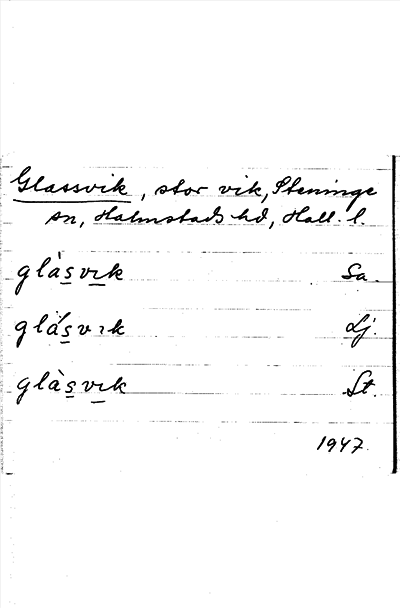 Glassvik, stor vik, Steninge
sn, Halmstads hd, Hall. l.
glàs̲vi̲k Sa.
glás̲vık Lj.
glàs̲vi̲k St.
1947